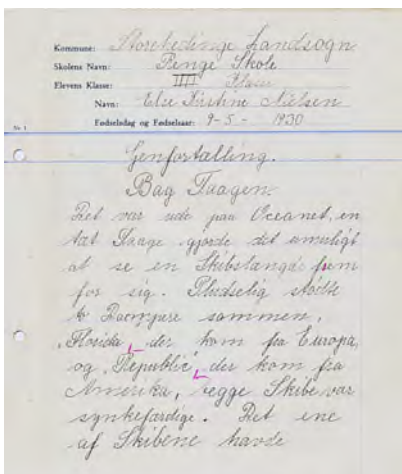 Kommune: Storehedinge Landsogn
Skolens Navn: Renge Skole
Elevens Klasse: IIII Klasse
Navn: Else Kirstine Nielsen
Fødselsdag og Fødselsaar: 9-5-1930
Nr. 1
Genfortælling.
Bag Taagen.
Det var ude paa Oceanet, en
tæt Taage gjorde det umuligt
at se en Skibslængde frem
for sig. Pludselig stødte
to Dampere sammen,
"Florida", der kom fra Europa,
og "Republic" der kom fra
Amerika, begge Skibe var
synkefærdige. Det ene
af Skibene havde